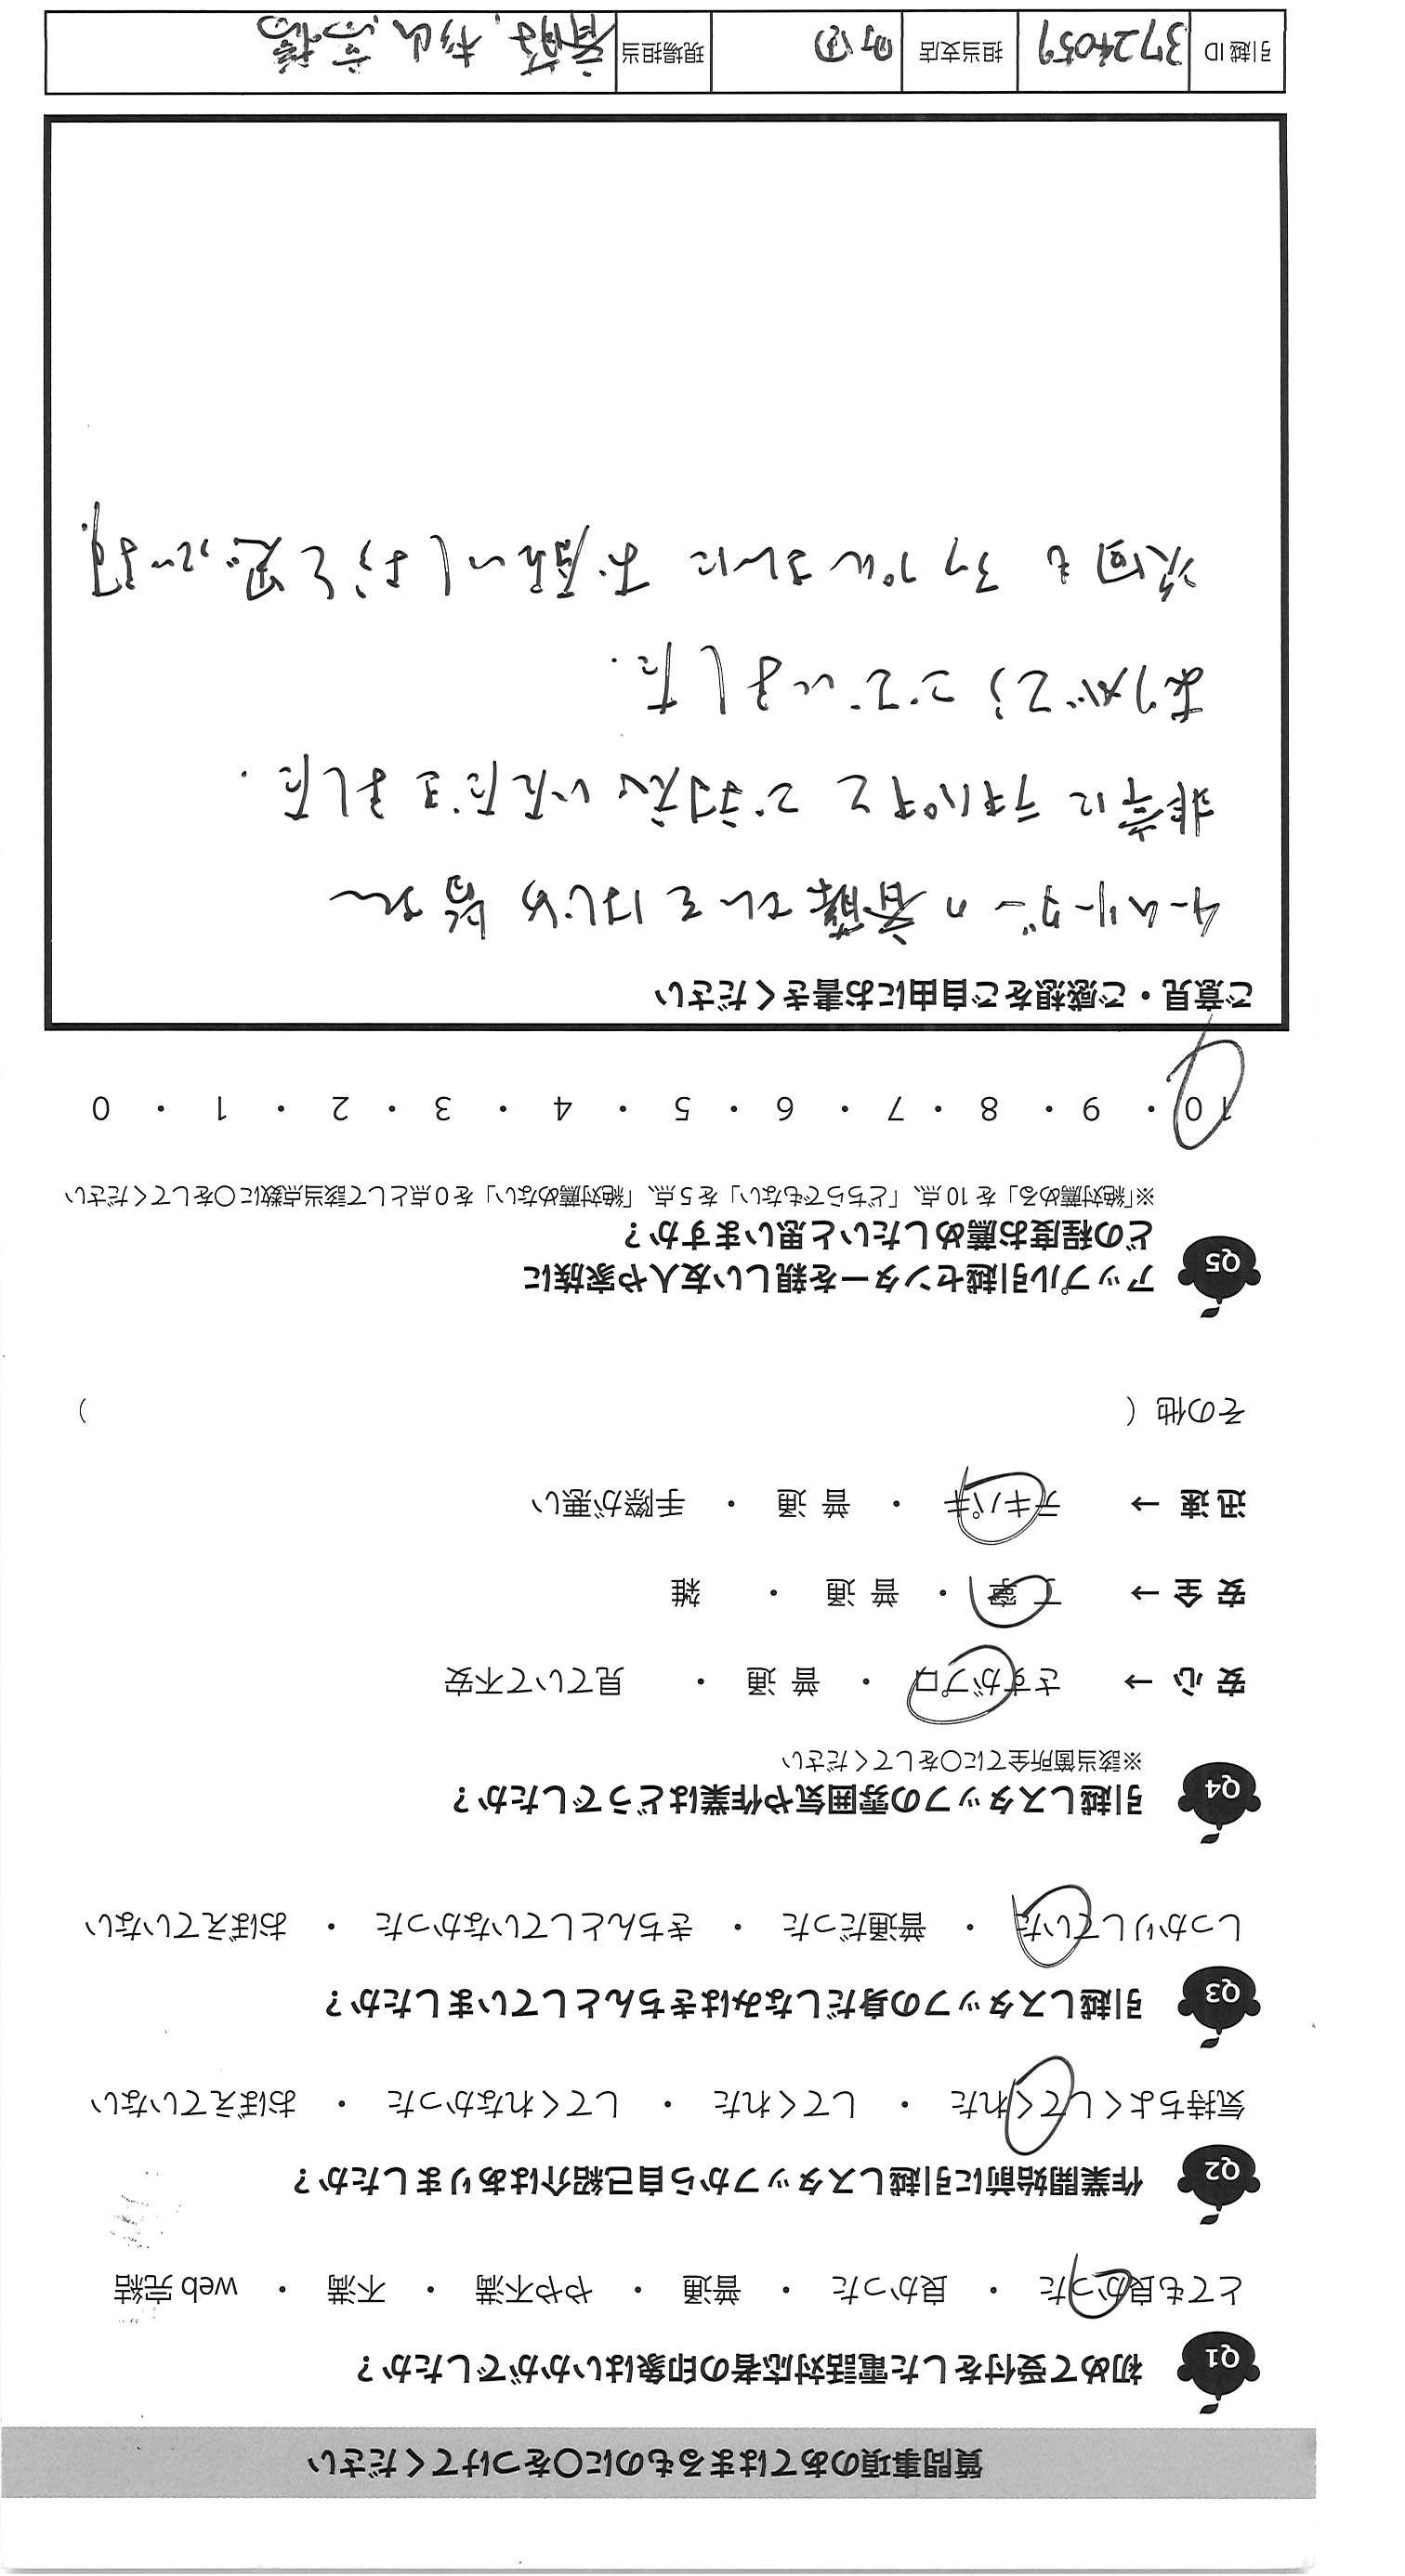 質問事項のあてはまるものに〇をつけてください
Q1 初めて受付をした電話対応者の印象はいかがでしたか？
とても良かった ・ 良かった ・ 普通 ・ やや不満 ・ 不満 ・ web 完結
Q2 作業開始前に引越しスタッフから自己紹介はありましたか？
気持ちよくしてくれた ・ してくれた ・ してくれなかった ・ おぼえていない
Q3 引越しスタッフの身だしなみはきちんとしていましたか？
しっかりしていた ・ 普通だった ・ きちんとしていなかった ・ おぼえていない
Q4 引越しスタッフの雰囲気や作業はどうでしたか？
※該当箇所全てに〇をしてください
安 心 → さすがプロ ・ 普 通 ・ 見ていて不安
安 全 → 丁 寧 ・ 普 通 ・ 雑
迅 速 → テキパキ ・ 普 通 ・ 手際が悪い
その他（ ）
Q5 アップル引越センターを親しい友人や家族に
どの程度お薦めしたいと思いますか？
※「絶対薦める」を 10 点、「どちらでもない」を 5 点、「絶対薦めない」を 0 点として該当点数に〇をしてください
10 ・ 9 ・ 8 ・ 7 ・ 6 ・ 5 ・ 4 ・ 3 ・ 2 ・ 1 ・ 0
ご意見・ご感想をご自由にお書きください
チームリーダーの斉藤さんをはじめ 皆さん
非常にテキパキとご対応いただきました.
ありがとうございました.
次回も アップルさんに お願いしようと思っています.
引越 ID 3724059 担当支店 町田 現場担当 斉藤, 杉山, 高橋